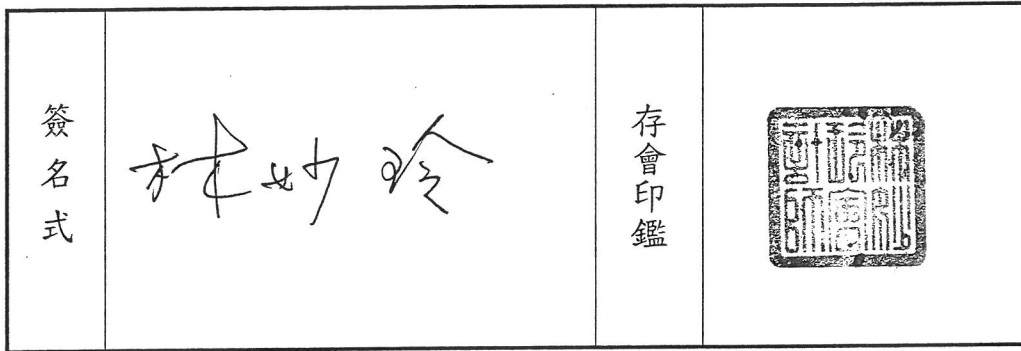 簽名式
林妙玲
存會印鑑